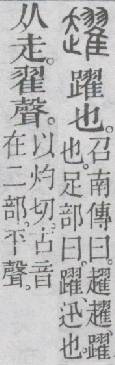 趯 躍也。召南傳曰。趯趯、躍
也。足部曰。躍、迅也
从走。翟聲。以灼切。古音
在二部。平聲。